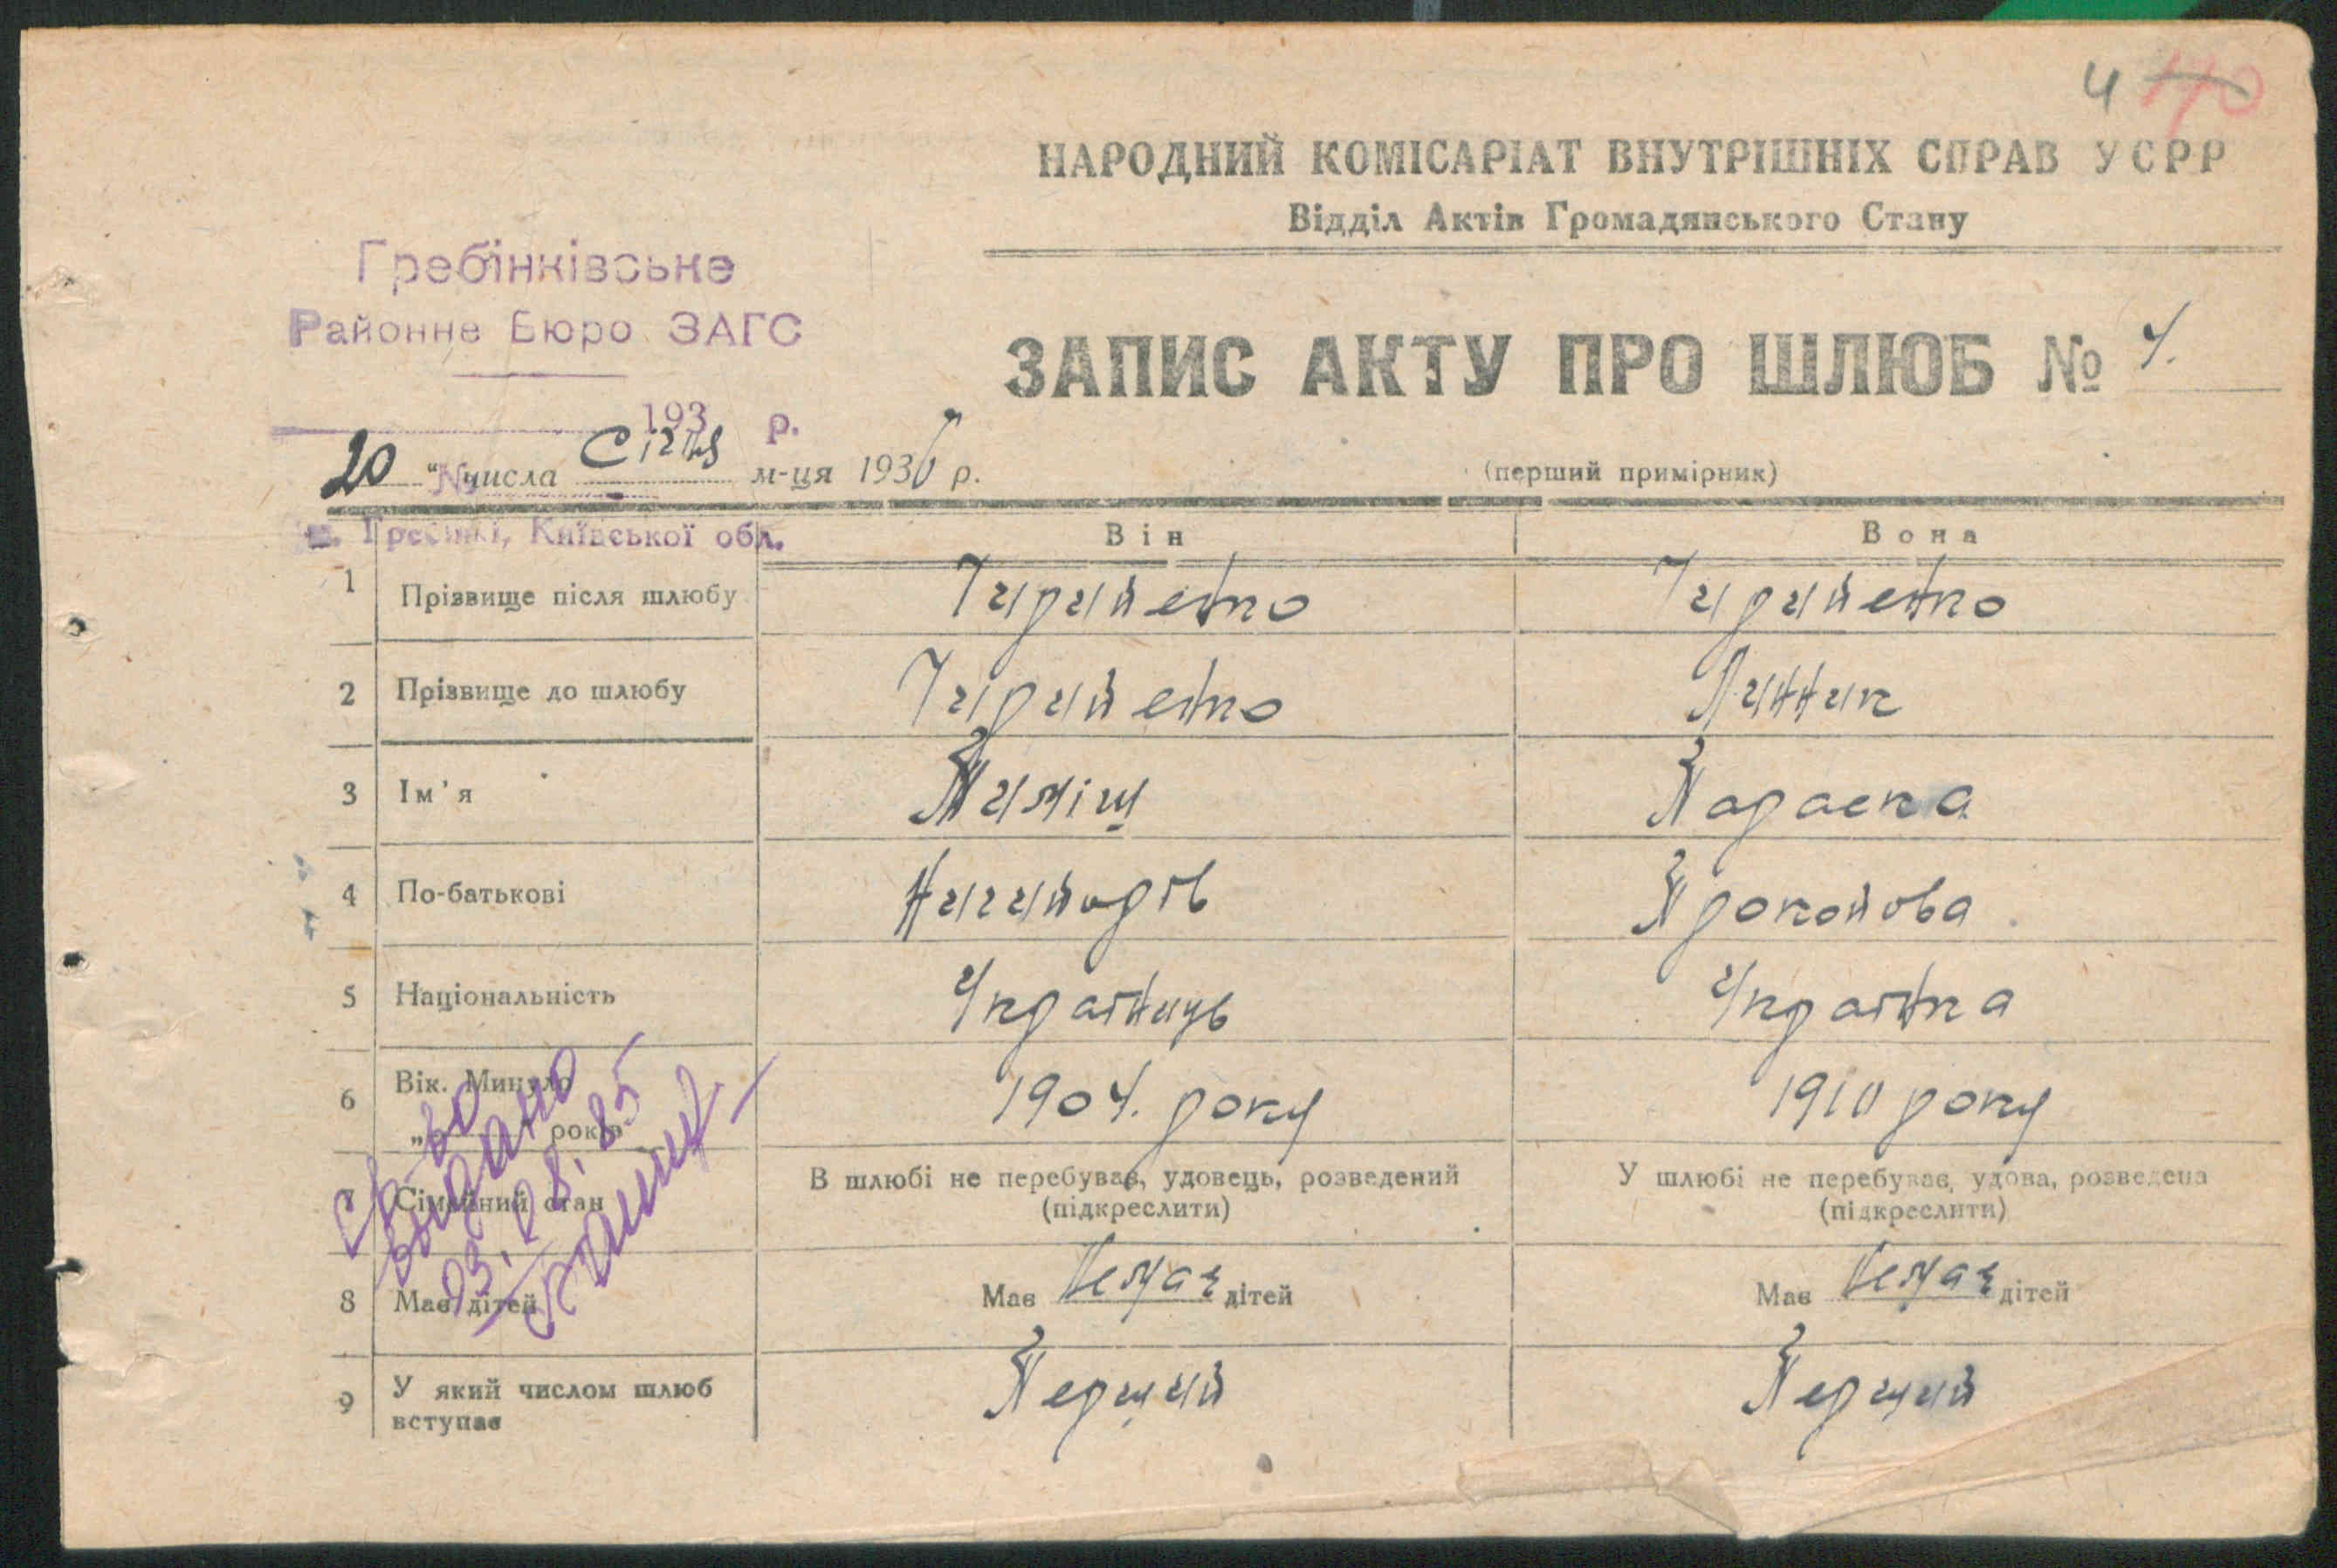 4
НАРОДНИЙ КОМІСАРІАТ ВНУТРІШНІХ СПРАВ УСРР
Відділ Актів Громадянського Стану
Гребінківське
Районне Бюро ЗАГС
ЗАПИС АКТУ ПРО ШЛЮБ № 4.
193 р.
20 " числа Січня м-ця 1936 р.
(перший примірник)
с. Гребінкі, Київської обл.
Він Вона
1 Прізвище після шлюбу Чирипенко Чирипенко
2 Прізвище до шлюбу Чирипенко Линник
3 Ім'я Тиміш Параска
4 По-батькові Ничипорів Прокопова
5 Національність Українець Українка
6 Вік. Минуло 1904. року 1910 року
„ " років
7 Сімейний стан В шлюбі не перебував, удовець, розведений У шлюбі не перебуває, удова, розведена
(підкреслити) (підкреслити)
8 Має дітей Має Немає дітей Має Немає дітей
9 У який числом шлюб Перший Перший
вступає
Св-во
выдано
03.08.85